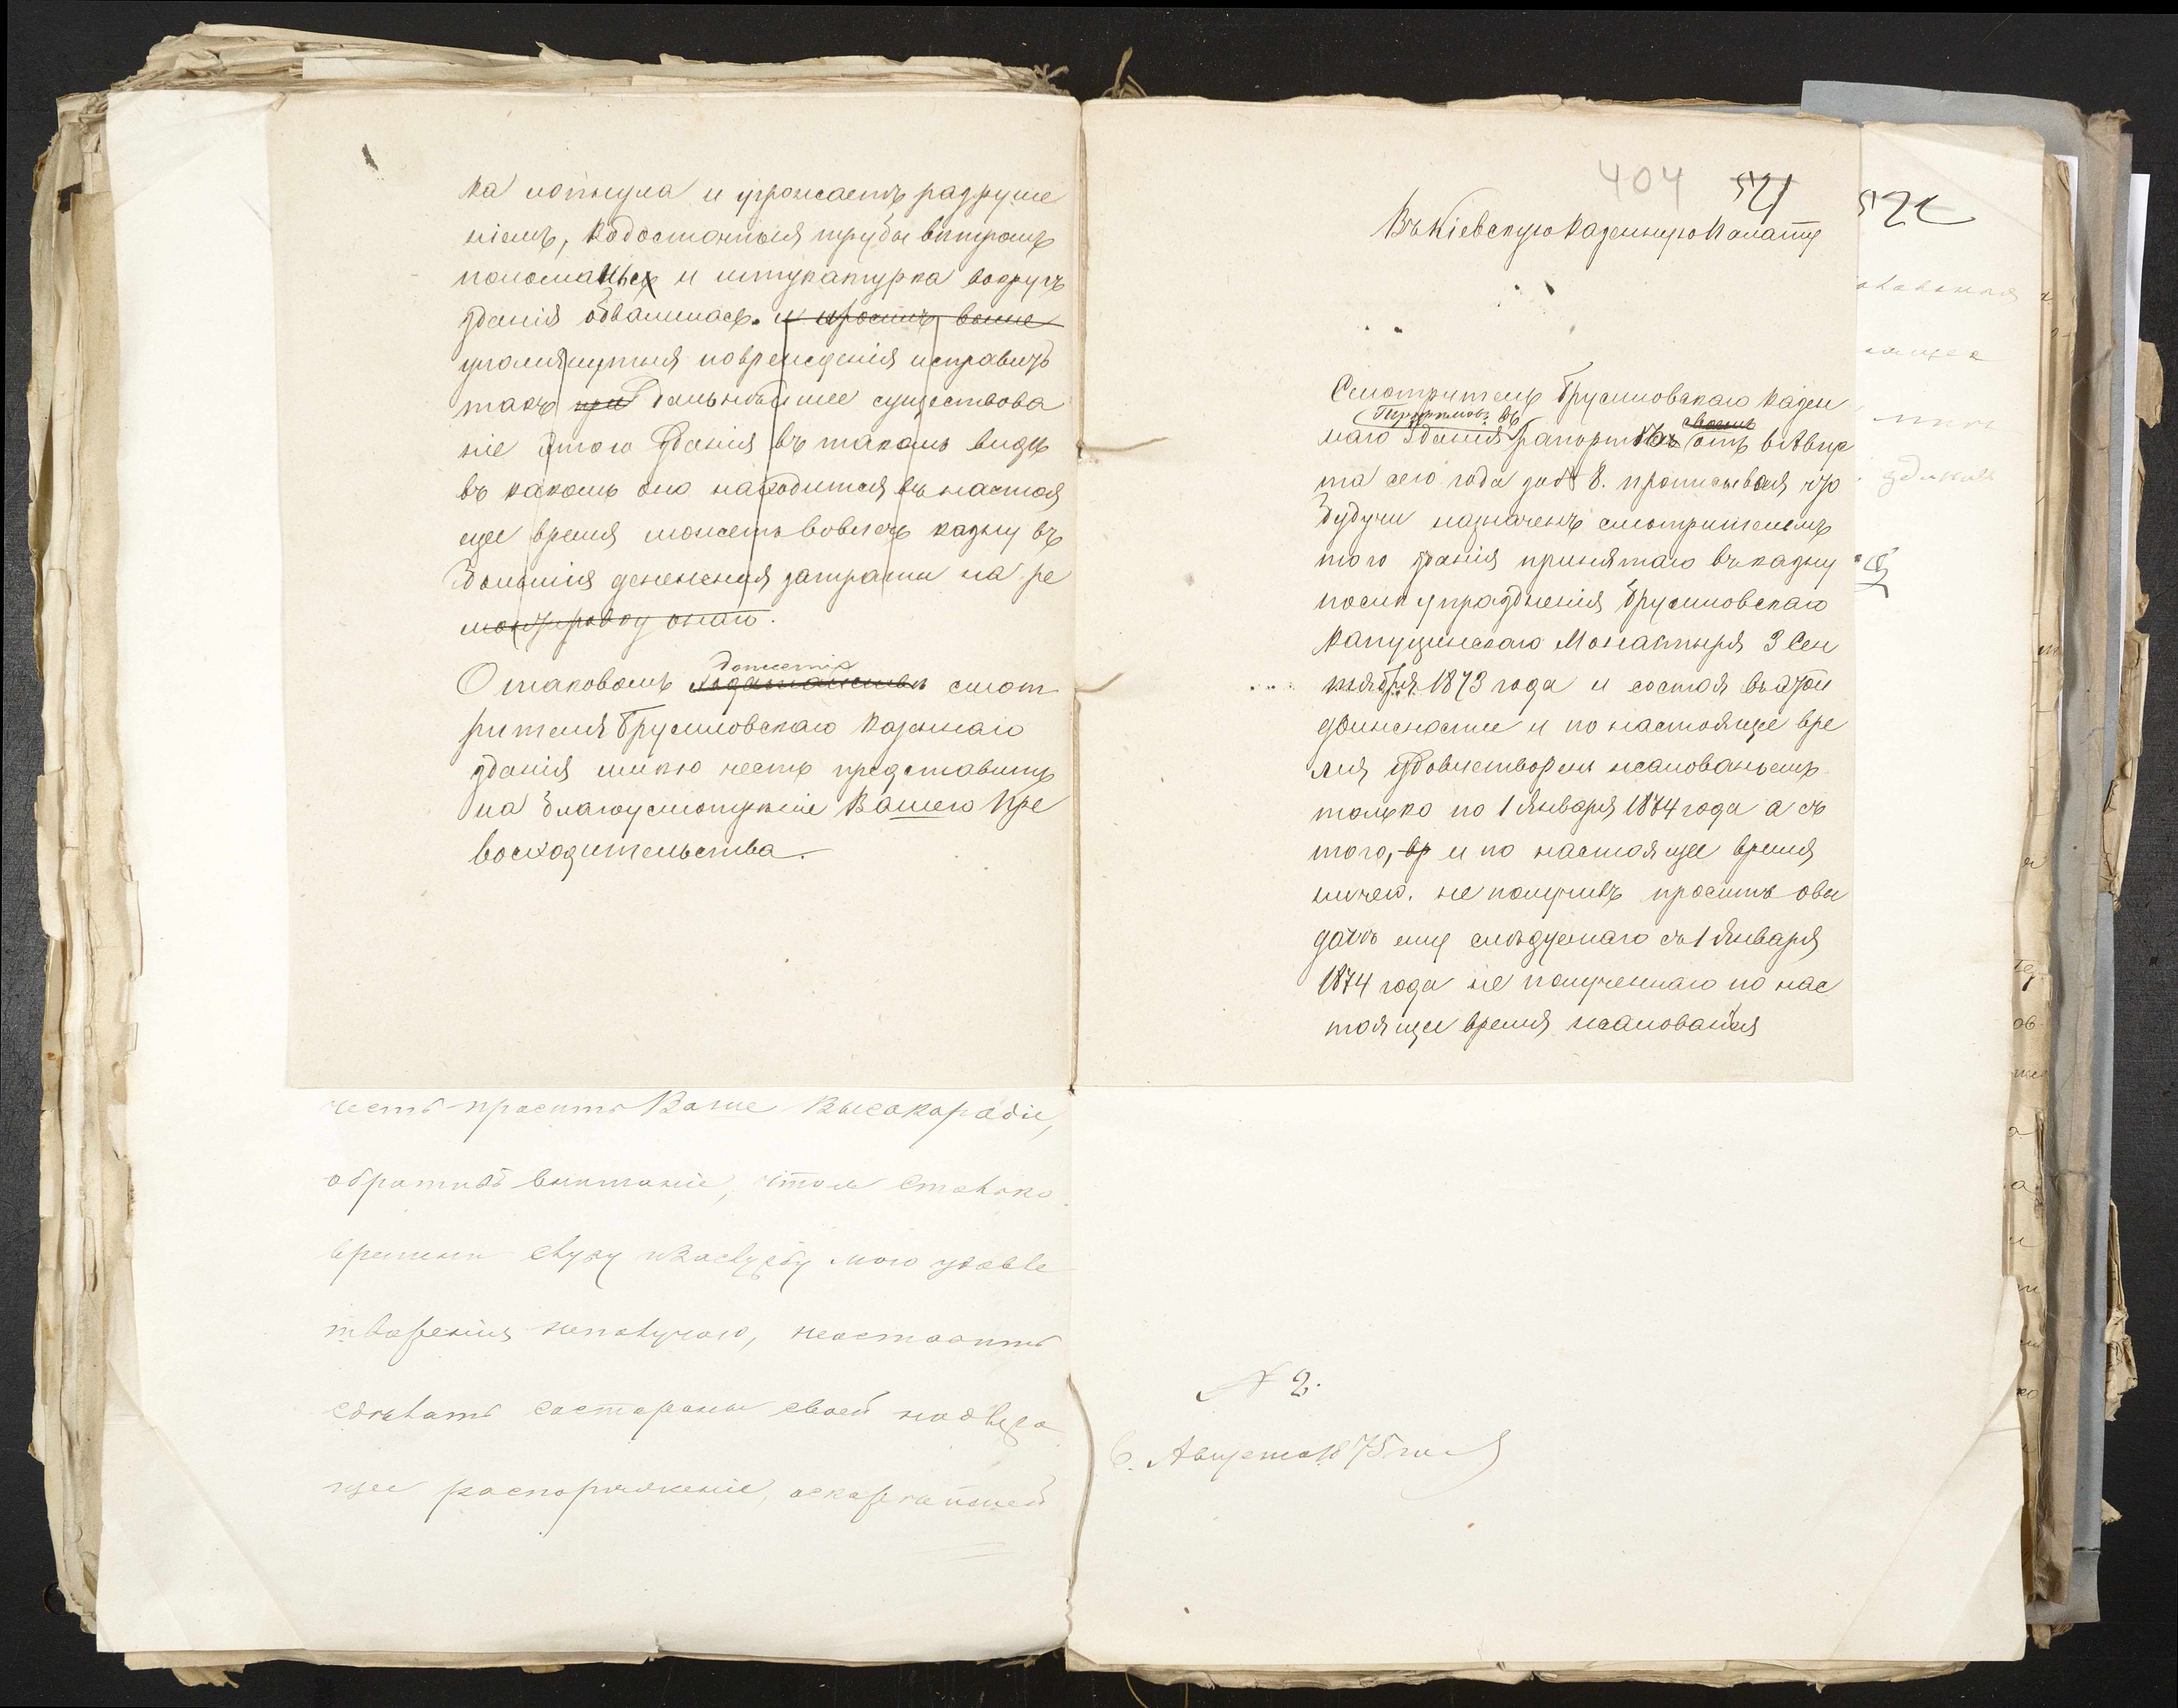 ка лопнула и угрожаетъ разруше
ніемъ, Водосточныя трубы вѣтромъ
поломаны и штукатурка вокругъ
зданія обвалилась. и проситъ выше
упомянутыя поврежденія исправить
такъ при дальнѣйшее существова
ніе этого зданія въ такомъ видѣ
въ какомъ оно находится въ настоя
щее время можетъ вовлечь казну въ
большія денежныя затраты на ре
монтировку онаго.
О таковомъ ходатайствѣ донесеніе смот
рителя Брусиловскаго казеннаго
зданія имѣю честь представить
на благоусмотрѣніе Вашего Пре
восходительства.
честь просить Ваше Высокородіе,
обратить внимание, столько
времени служу за службу мою удовле
творенія неполучаю,
сдѣлать состороны своей надлежа
щее распоряженіе, оскорѣйшей
404 521
Въ Кіевскую Казенную Палату
Смотритель Брусиловскаго Казен
наго Зданія въ рапортѣ своемъ отъ 6 Авгус
та сего года за № 8. прописывая что
будучи назначенъ смотрителемъ
того зданія принятаго въ казну
послѣ упраздненія Брусиловскаго
Капуцинскаго Монастыря 3 Сен
тября 1873 года и состоя въ этой
должности и по настоящее вре
мя удовлетворенъ жалованьемъ
только по 1 Января 1874 года а съ
того, вр и по настоящее время
ничего не получивъ проситъ овы
дачѣ ему слѣдуемаго съ 1 Января
1874 года не полученнаго по нас
тоящее время жалованія
№ 2.
6. Августа 1875 года
522